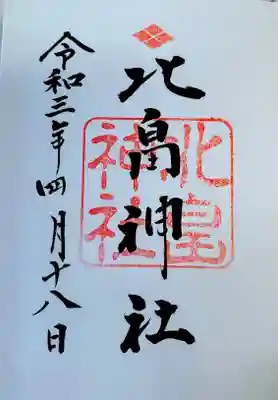 北畠神社
北畠神社
令和三年四月十八日